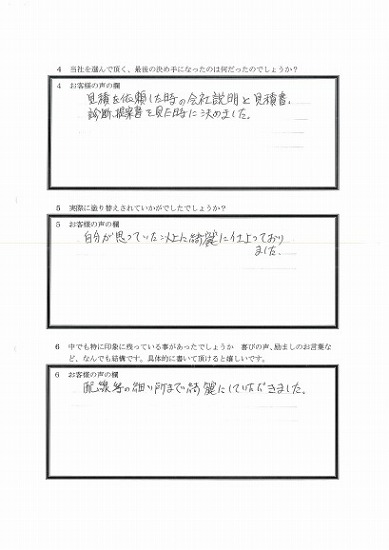 4 当社を選んで頂く、最後の決め手になったのは何だったのでしょうか?
4 お客様の声の欄
見積を依頼した時の会社説明と見積書、
診断、提案書を見た時に決めました。
5 実際に塗り替えされていかがでしたでしょうか?
5 お客様の声の欄
自分が思っていた以上に綺麗に仕上っており
ました。
6 中でも特に印象に残っている事があったでしょうか 喜びの声、励ましのお言葉な
ど、なんでも結構です。具体的に書いて頂けると嬉しいです。
6 お客様の声の欄
配線等の細い所まで綺麗にしていただきました。